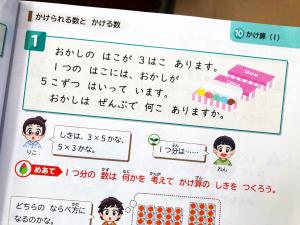 かけられる数と かける数
10 かけ算(1)
1
おかしの はこが 3はこ あります。
1つの はこには、おかしが
5こずつ はいって います。
おかしは ぜんぶで 何こ ありますか。
しきは、3×5かな、
5×3かな。
りこ
1つ分は……
れん
めあて 1つ分の 数は 何かを 考えて かけ算の しきを つくろう。
どちらの ならべ方に
なるのかな。